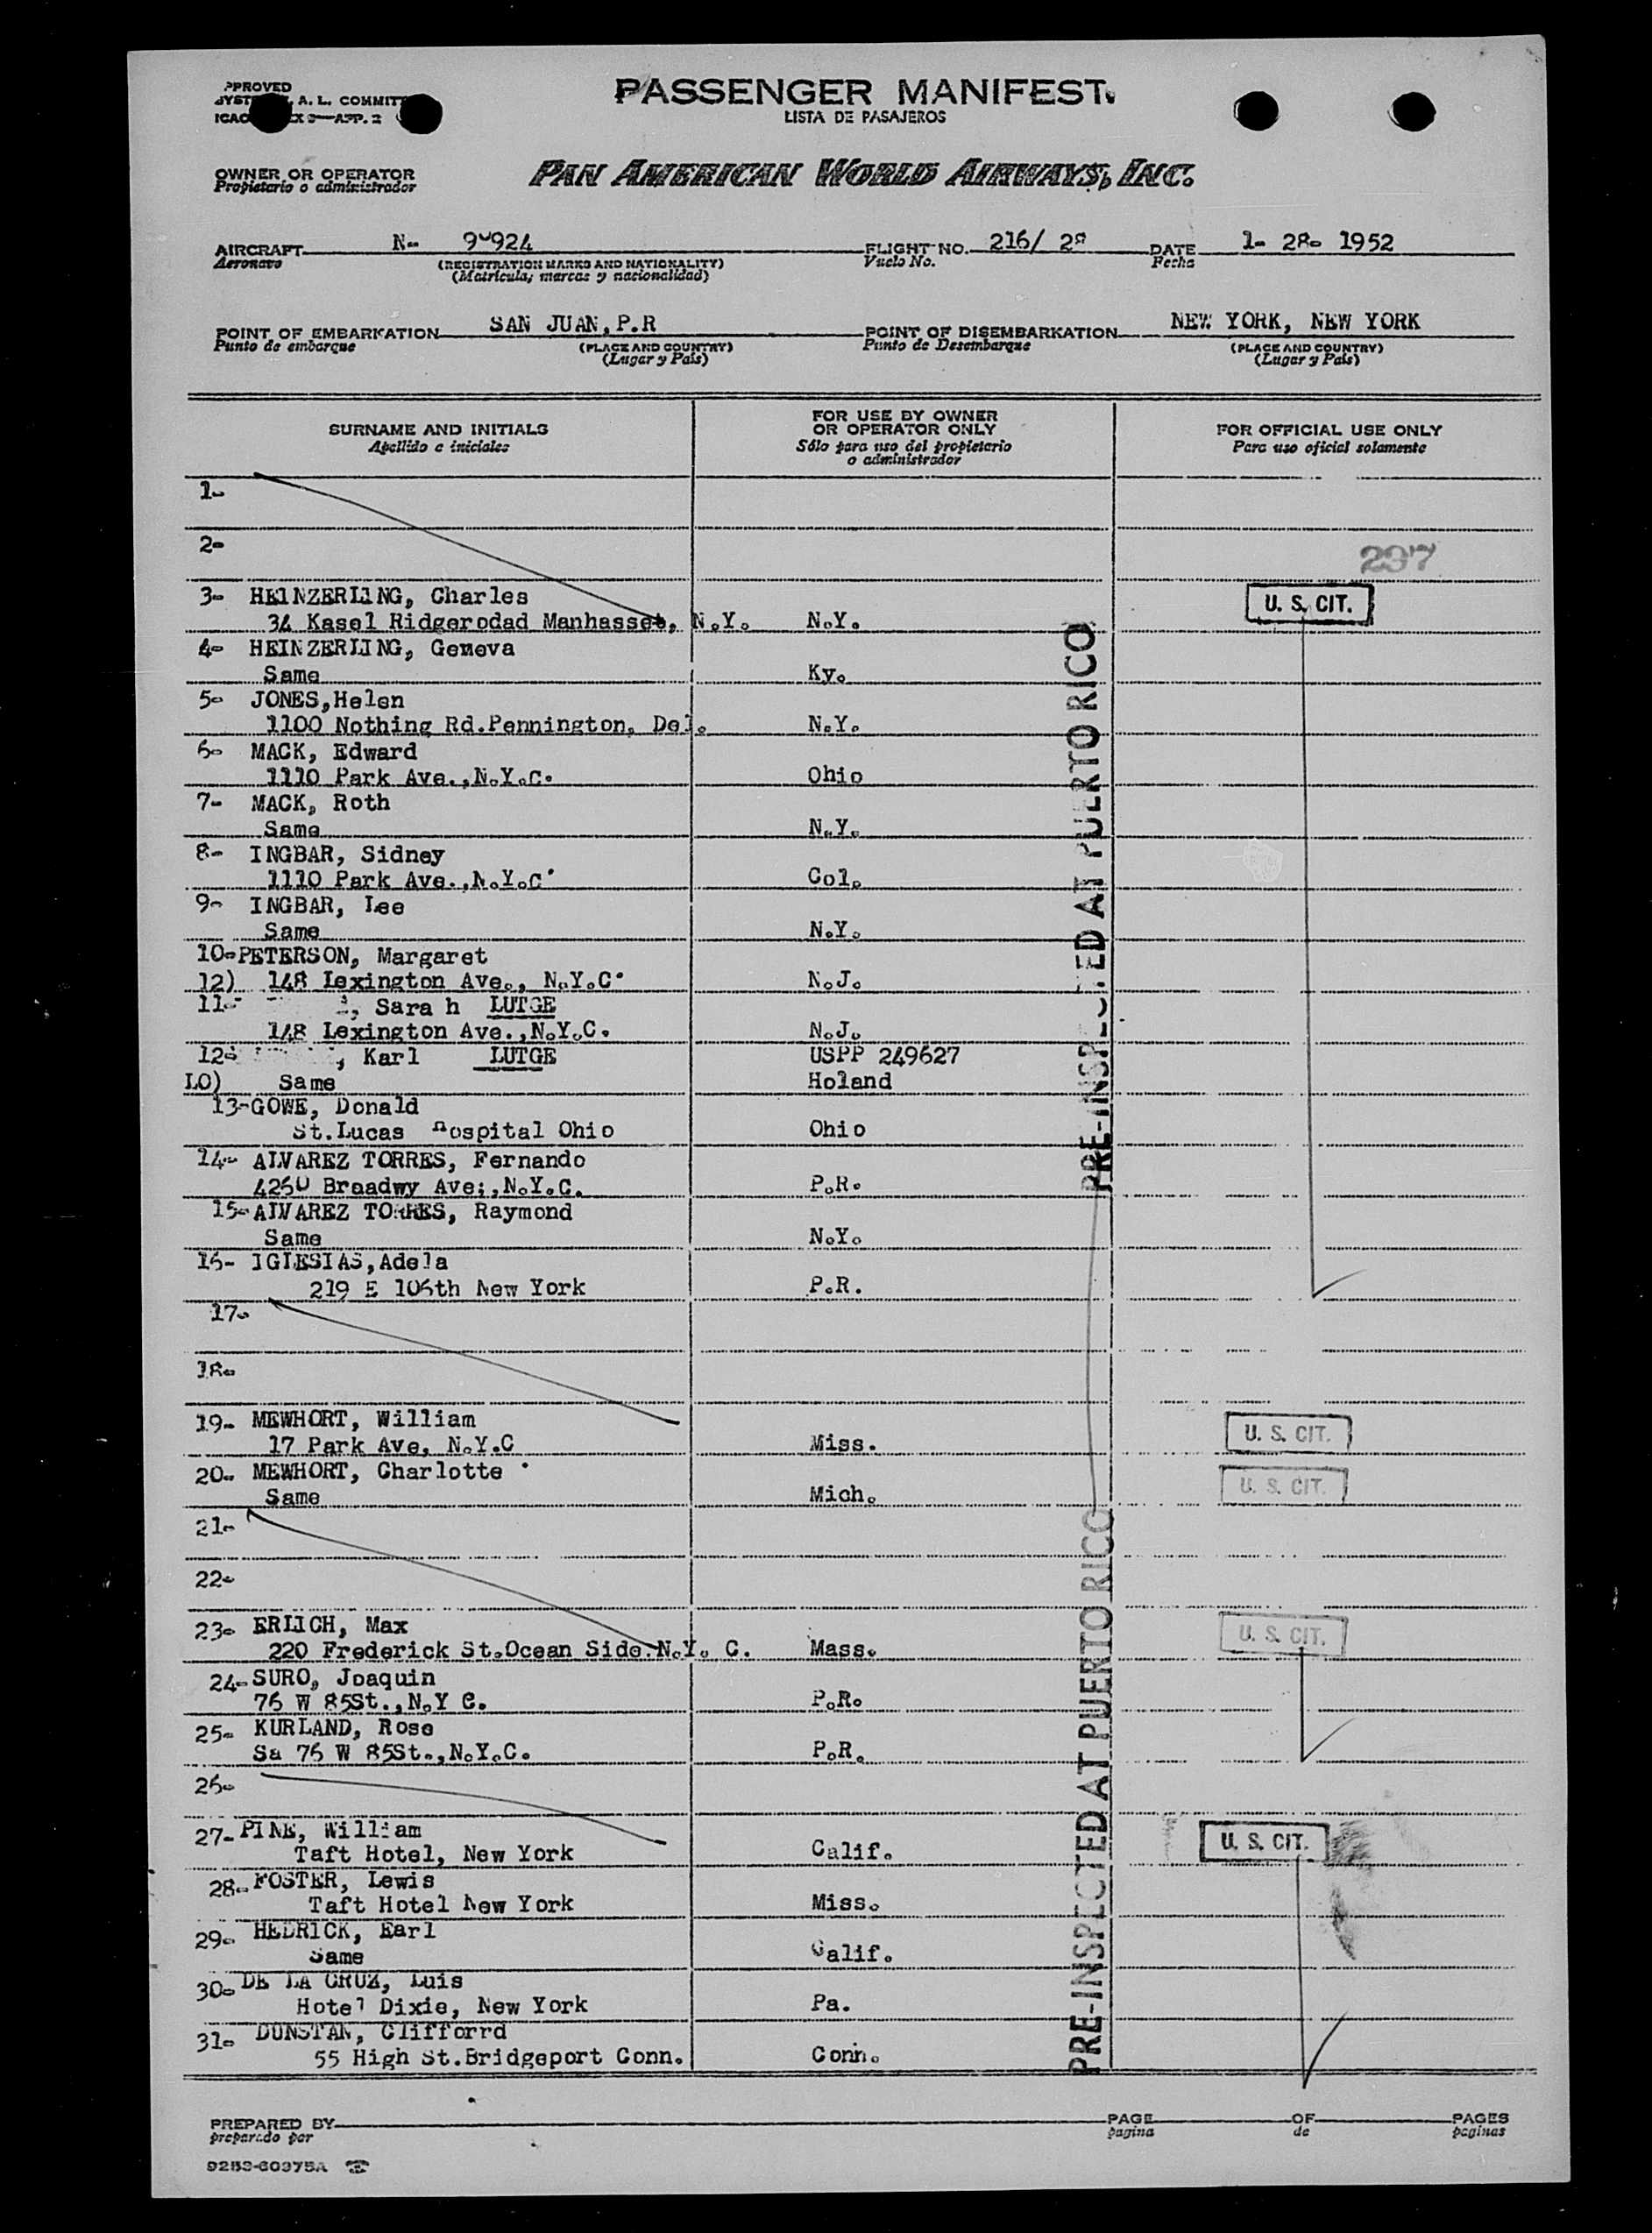 PASSENGER MANIFEST
LISTA DE PASAJEROS
A. L. COMMITT
APP. 2
OWNER OR OPERATOR
Propietario o administrador
PAN AMERICAN WORLD AIRWAYS, INC.
AIRCRAFT N- 924 FLIGHT NO. 216/ DATE 1- 28- 1952
Aeronave (REGISTRATION MARKS AND NATIONALITY) Vuelo No. Fecha
(Matricula, marcas y nacionalidad)
POINT OF EMBARKATION SAN JUAN, P.R POINT OF DISEMBARKATION NEW YORK, NEW YORK
Punto de embarque (PLACE AND COUNTRY) Punto de Desembarque (PLACE AND COUNTRY)
(Lugar y País) (Lugar y País)
SURNAME AND INITIALS FOR USE BY OWNER OR OPERATOR ONLY FOR OFFICIAL USE ONLY
Apellido e iniciales Sólo para uso del propietario o administrador Para uso oficial solamente
1-
2-
297
3- HEINZERLING, Charles U. S. CIT.
34 Kasel Ridgerodad Manhasset, N.Y. N.Y.
4- HEINZERLING, Geneva
Same Ky.
5- JONES,Helen
1100 Nothing Rd.Pennington, Del. N.Y.
6- MACK, Edward
1110 Park Ave.,N.Y.C. Ohio
7- MACK, Roth
Same N.Y.
8- INGBAR, Sidney
1110 Park Ave.,N.Y.C Col.
9- INGBAR, Lee
Same N.Y.
10-PETERSON, Margaret
12) 148 Lexington Ave., N.Y.C N.J.
11- , Sara h LUTGE
148 Lexington Ave.,N.Y.C. N.J.
12- , Karl LUTGE USPP 249627
LO) Same Holand
13-GOWE, Donald
St.Lucas Hospital Ohio Ohio
14- ALVAREZ TORRES, Fernando
4250 Broadwy Ave;,N.Y.C. P.R.
15-ALVAREZ TORRES, Raymond
Same N.Y.
16- IGLESIAS,Adela
219 E 106th New York P.R.
17-
18-
19- MEWHORT, William U. S. CIT.
17 Park Ave, N.Y.C Miss.
20- MEWHORT, Charlotte U. S. CIT.
Same Mich.
21-
22-
23- ERLICH, Max U. S. CIT.
220 Frederick St.Ocean Side.N.Y. C. Mass.
24-SURO, Joaquin
76 W 85St.,N.Y C. P.R.
25- KURLAND, Rose
Sa 76 W 85St.,N.Y.C. P.R.
26-
27-PINE, William U. S. CIT.
Taft Hotel, New York Calif.
28-FOSTER, Lewis
Taft Hotel New York Miss.
29- HEDRICK, Earl
Same Calif.
30-DE LA CRUZ, Luis
Hotel Dixie, New York Pa.
31- DUNSTAN, Clifforrd
55 High St.Bridgeport Conn. Conn.
PRE-INSPECTED AT PUERTO RICO
PRE-INSPECTED AT PUERTO RICO
PREPARED BY PAGE OF PAGES
preparado por pagina de paginas
9253-60375A